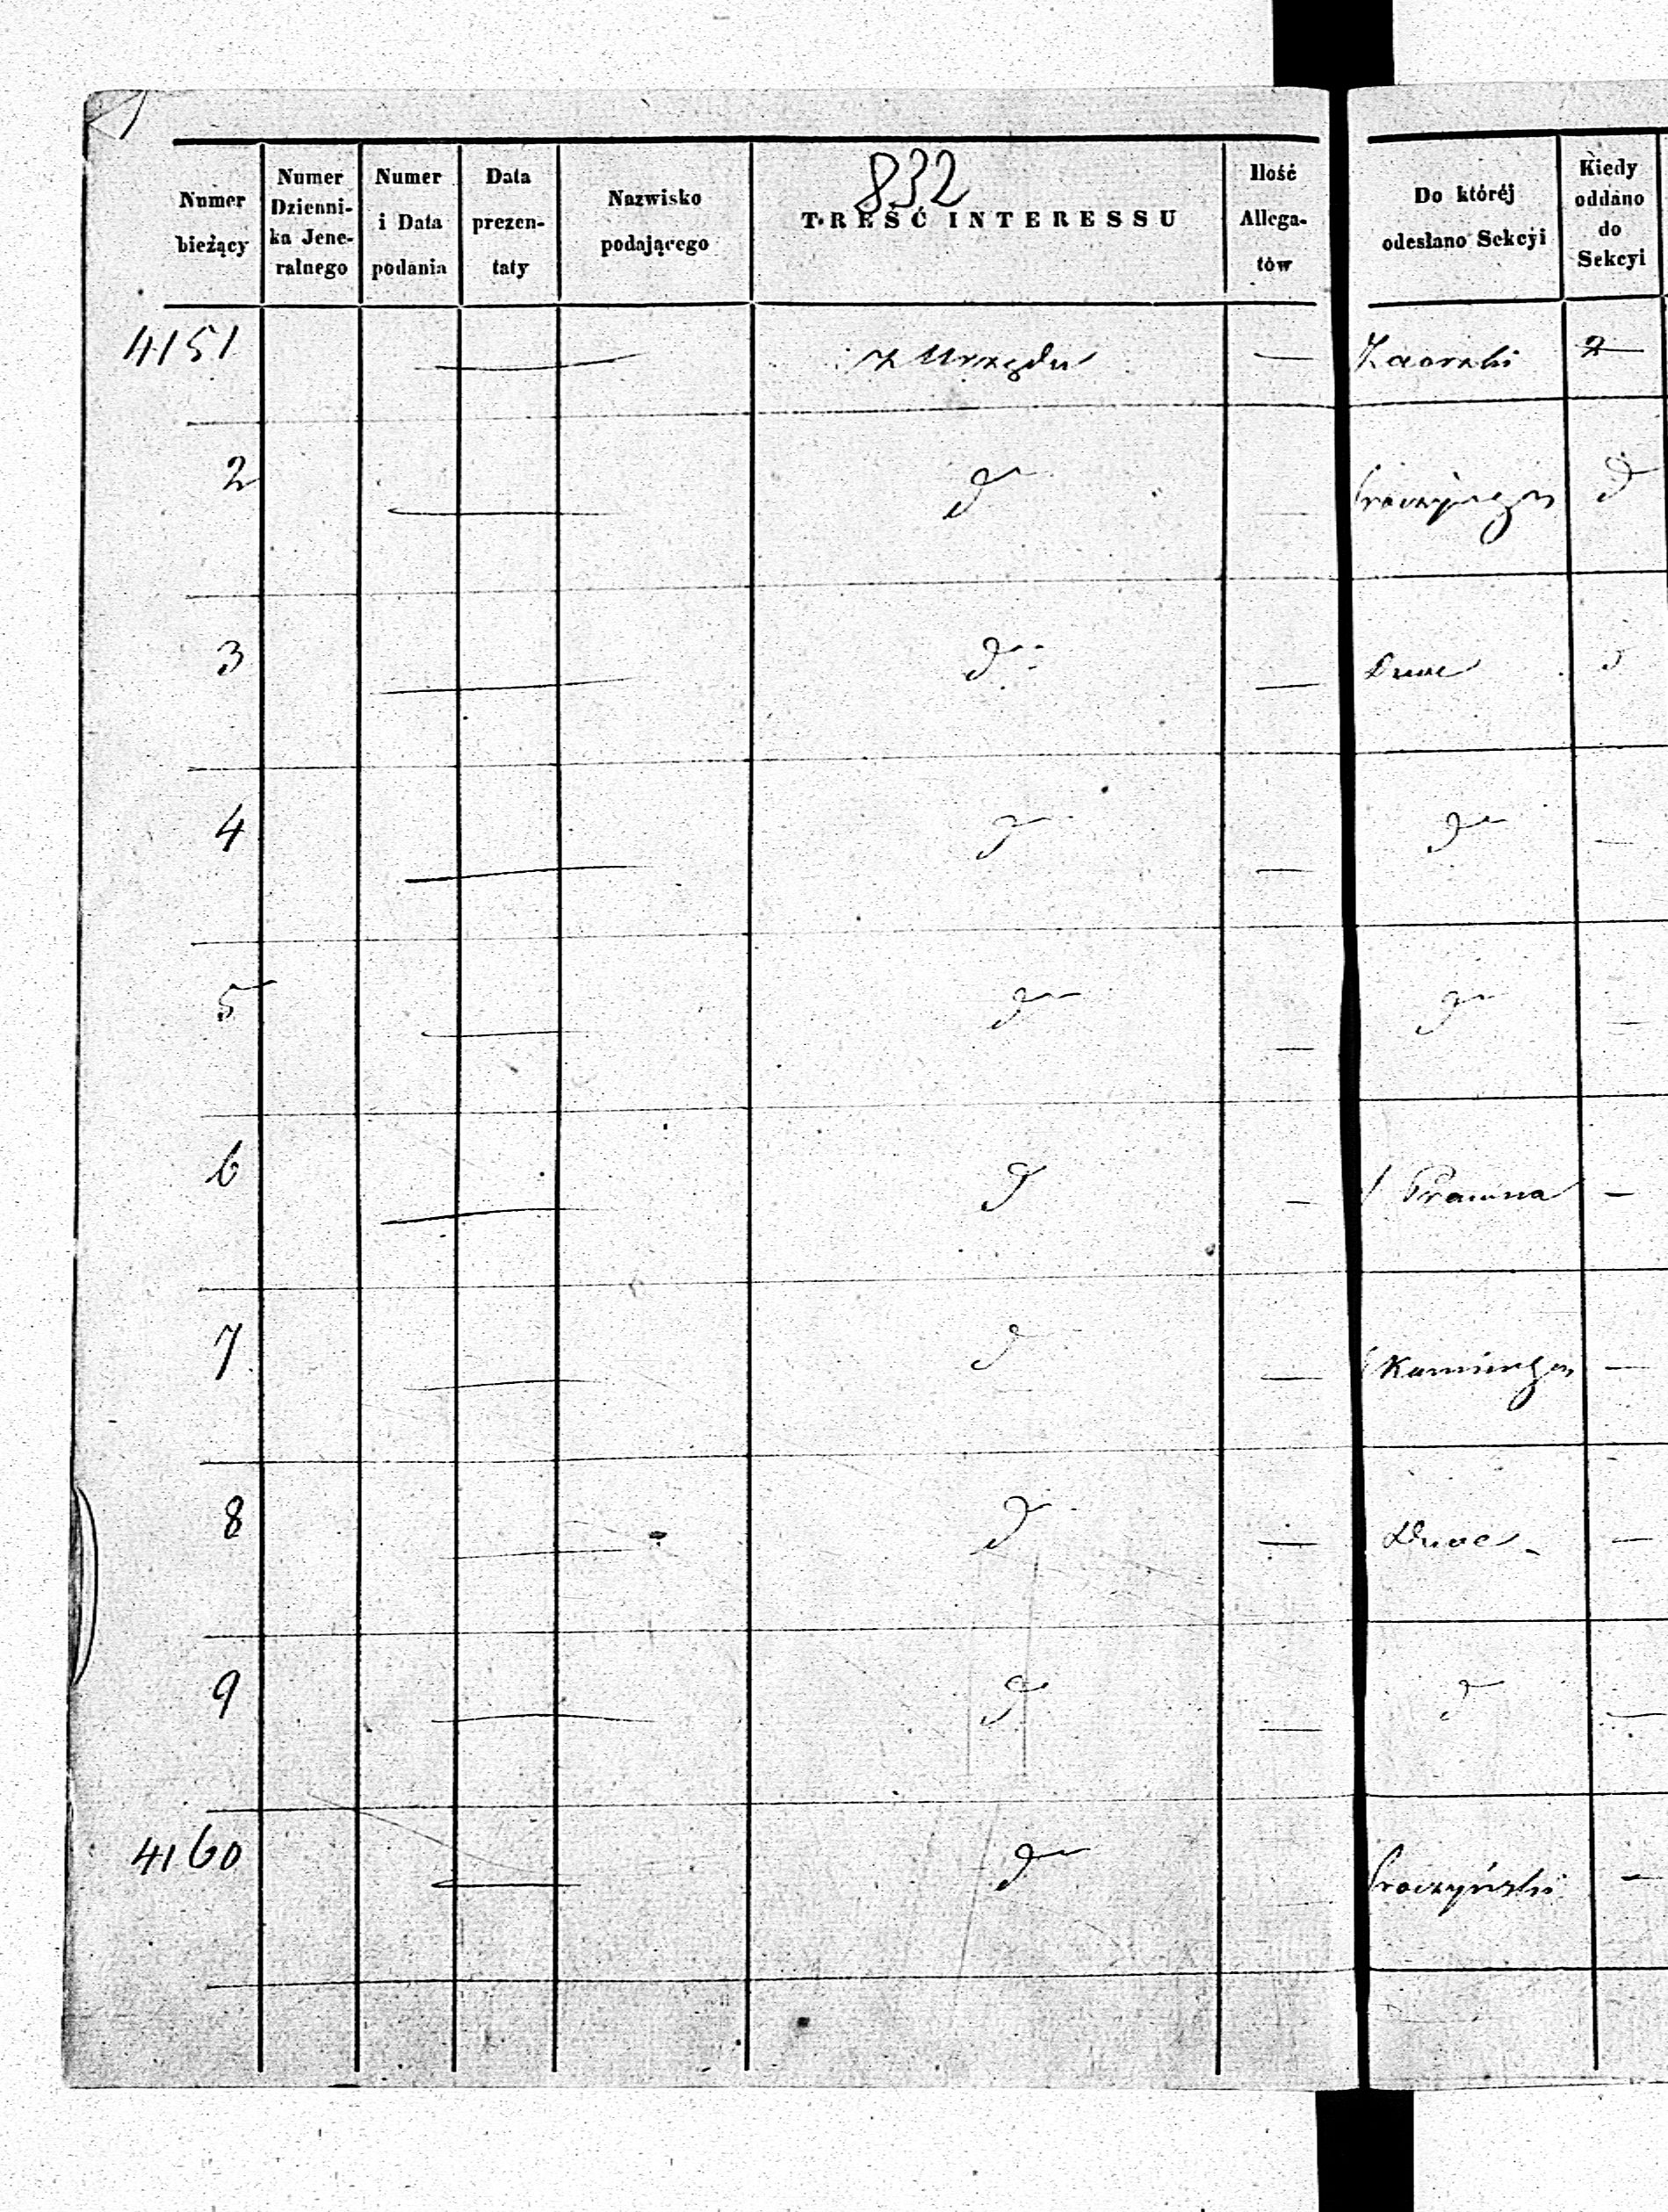 832
Numer bieżący
Numer Dzienni-
ka Jene-
ralnego
Numer i Data podania
Data prezen-
taty
Nazwisko podającego
TREŚĆ INTERESSU
Ilość Allega-
tów
Do któréj odesłano Sekcyi
Kiedy oddano do Sekcyi
4151 — z Urzędu — Zaorski
2 — d°
3 — d° —
4 — d° — d° —
5 — d° — d° —
6 — d — Prawna —
7 — d — —
8 — d° — —
9 — d° — d —
4160 — d° Proczyński —